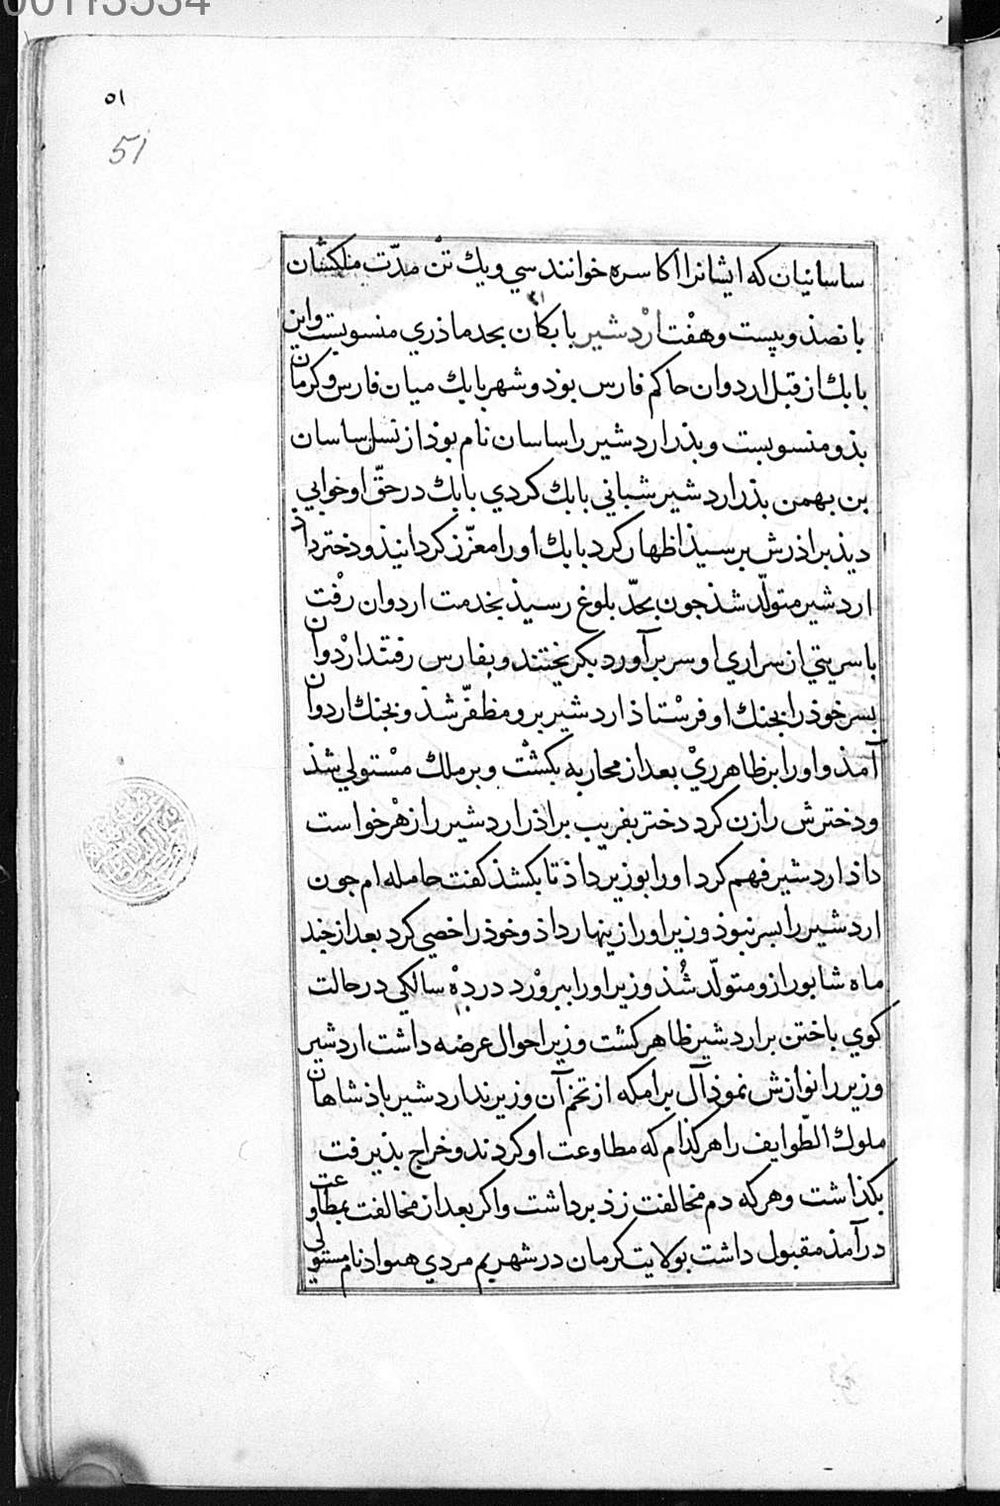 00113534
٥١
51
ساسانیان که ایشانرا اکاسره خوانند سي ویك تن مدّت ملکشان
بانصذ و بیست و هفت اردشیر بابکان بجد ماذري منسوبست و این
بابك از قبل اردوان حاکم فارس بوذ و شهر بابك میان فارس و کرمان
بذو منسوبست و بذر اردشیر را ساسان نام بوذ از نسل ساسان
بن بهمن بذر اردشیر شباني بابك کردي بابك در حقّ او خوابي
دیذ براذرش برسیذ اظهار کرد بابك اورا معزّز کردانیذ و دختر داذ
اردشیر متولّد شذ جون بحدّ بلوغ رسیذ بخدمت اردوان رفت
با سریتي از سراري او سر برآورد بکریختند و بفارس رفتند اردوان
بسر خوذ را بجنك او فرستاذ اردشیر برو مظفّر شذ و بجنك اردوان
آمذ و اورا بر ظاهر ريْ بعد از محاربه بکشت و بر ملك مستولي شذ
و دخترش را زن کرد دختر بفریب براذر اردشیر را زهر خواست
داذ اردشیر فهم کرد اورا بوزیر داذ تا بکشذ کفت حامله ام جون
اردشیر را بسر نبوذ وزیر اورا زینهار داذ و خوذ را خصي کرد بعد از جند
ماه شابور ازو متولّد شُذ وزیر اورا ببرورد در ده سالکي در حالت
کوي باختن بر اردشیر ظاهر کشت وزیر احوال عرضه داشت اردشیر
وزیر را نوازش نموذ آل برامکه از تخم آن وزیرند اردشیر باذشاهان
ملوك الطّوایف را هر کذام که مطاوعت او کردند و خراج بذیرفت
بکذاشت و هر که دم مخالفت زذ برداشت و اکر بعد از مخالفت بمطاوعت
درآمذ مقبول داشت بولایت کرمان در شهر بم مردي هسواد نام مستولي